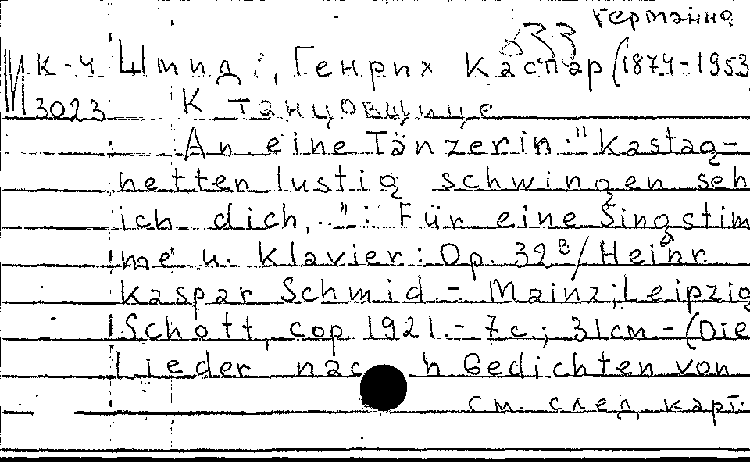 германна
33
К-4 Шмид, Генрих Каспар (1874-1953
3023 К танцовщице
An eine Tänzerin: "Kastag-
netten lustig schwingen seh
ich dich,.": Für eine Singstim
me u. Klavier: Op. 32 B / Heinr.
Kaspar Schmid - Mainz; Leipzig
Schott, cop 1921. - 7c; 31cm - (Die
Lieder nach Gedichten von
см. след. карт.